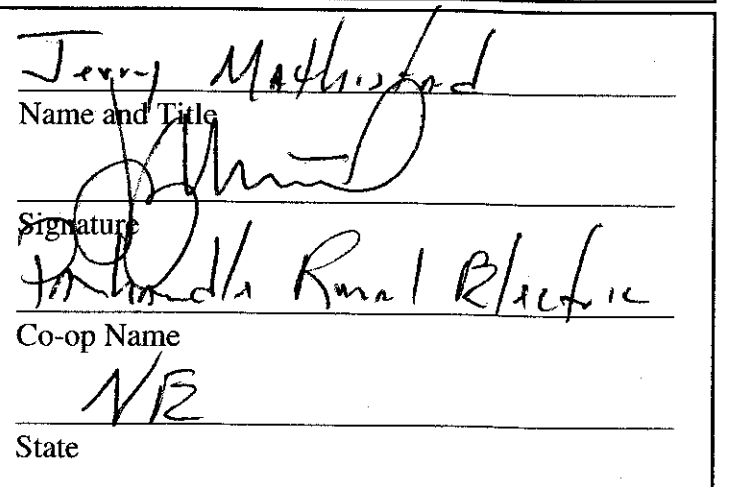 Jerry
Name and Title
Signature
Panhandle Rural Electric
Co-op Name
NE
State